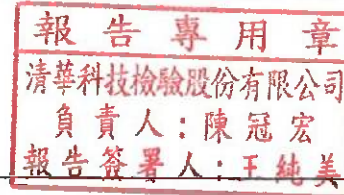 報告專用章
清華科技檢驗股份有限公司
負責人：陳冠宏
報告簽署人：王純美